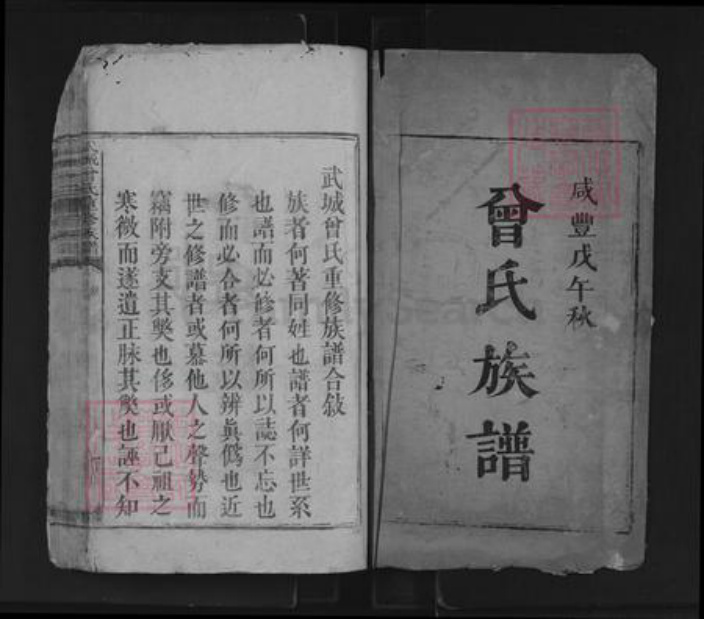 咸豐戊午秋
曾氏族譜
武城曾氏重修族譜合敘
族者何著同姓也譜者何詳世系
也譜而必修者何所以誌不忘也
修而必合者何所以辨眞僞也近
世之修譜者或慕他人之聲勢而
竊附旁支其獘也侈或厭己祖之
寒微而遂遺正脉其獘也誣不知
武城曾氏重修族譜